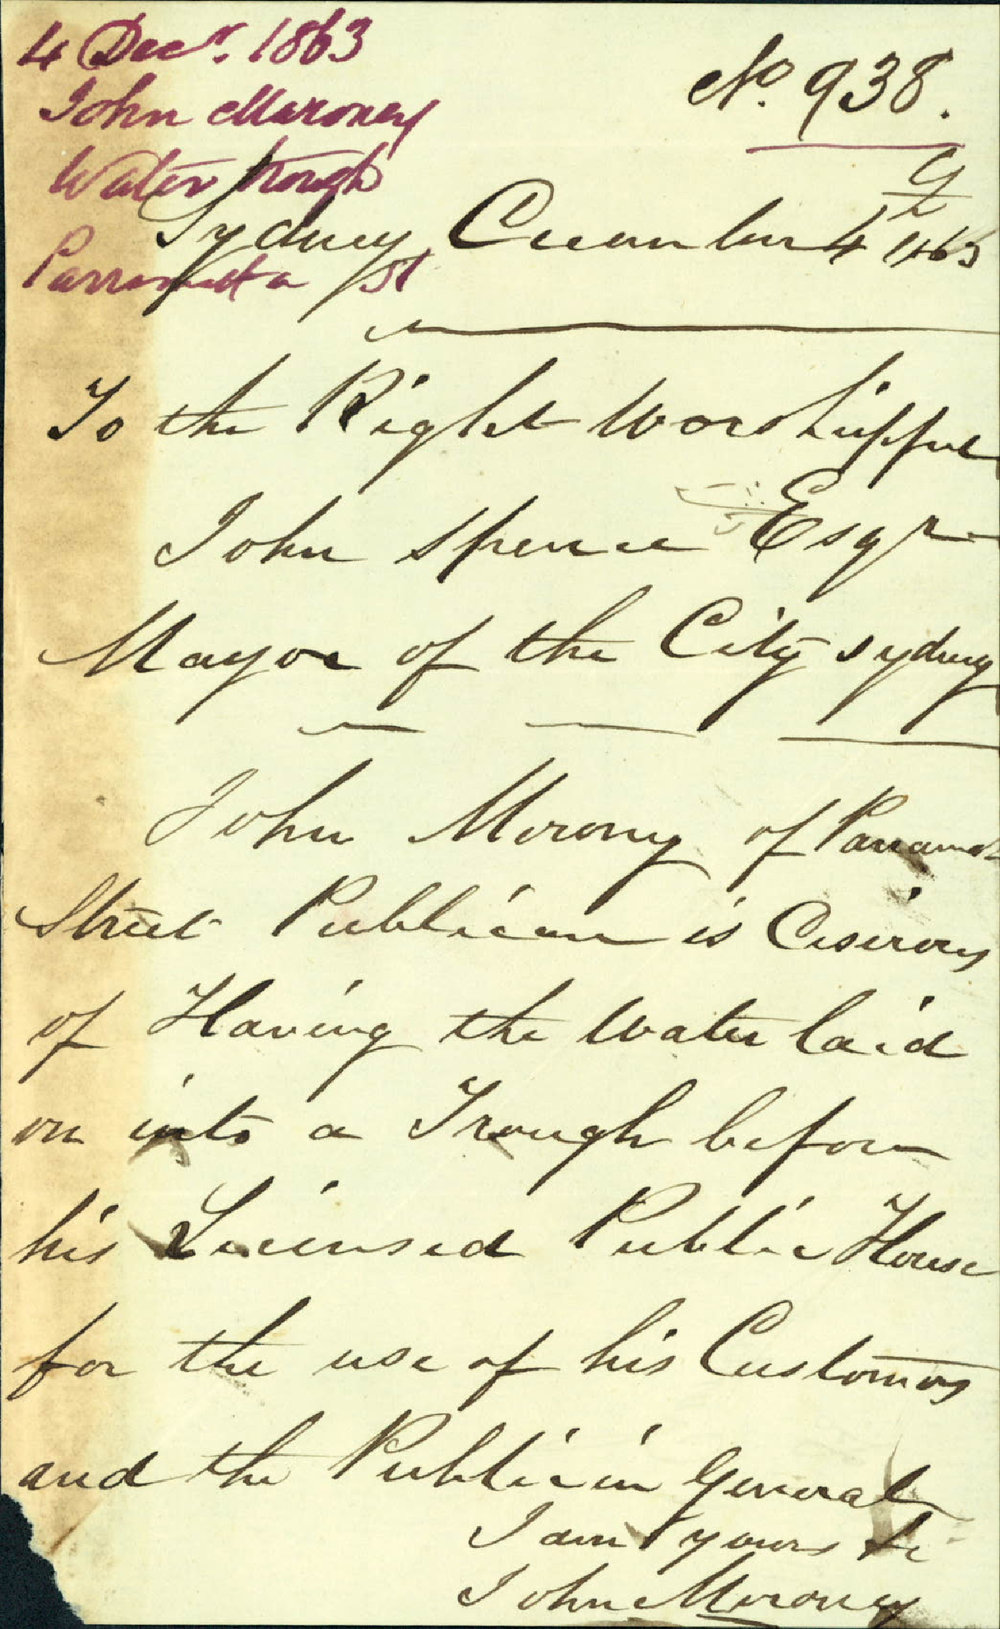 4 Decr. 1863
John Maroney
Water trough
Parramatta St
No. 938.
Sydney December 4 1863
To the Right Worshippful
John Spence Esqr
Mayor of the City Sydney
John Morony of Parramat
Street Publican is Desirous
of Having the Water laid
on into a Trough before
his Licensed Public House
for the use of his Customers
and the Public in General
I am yours &c
John Moroney